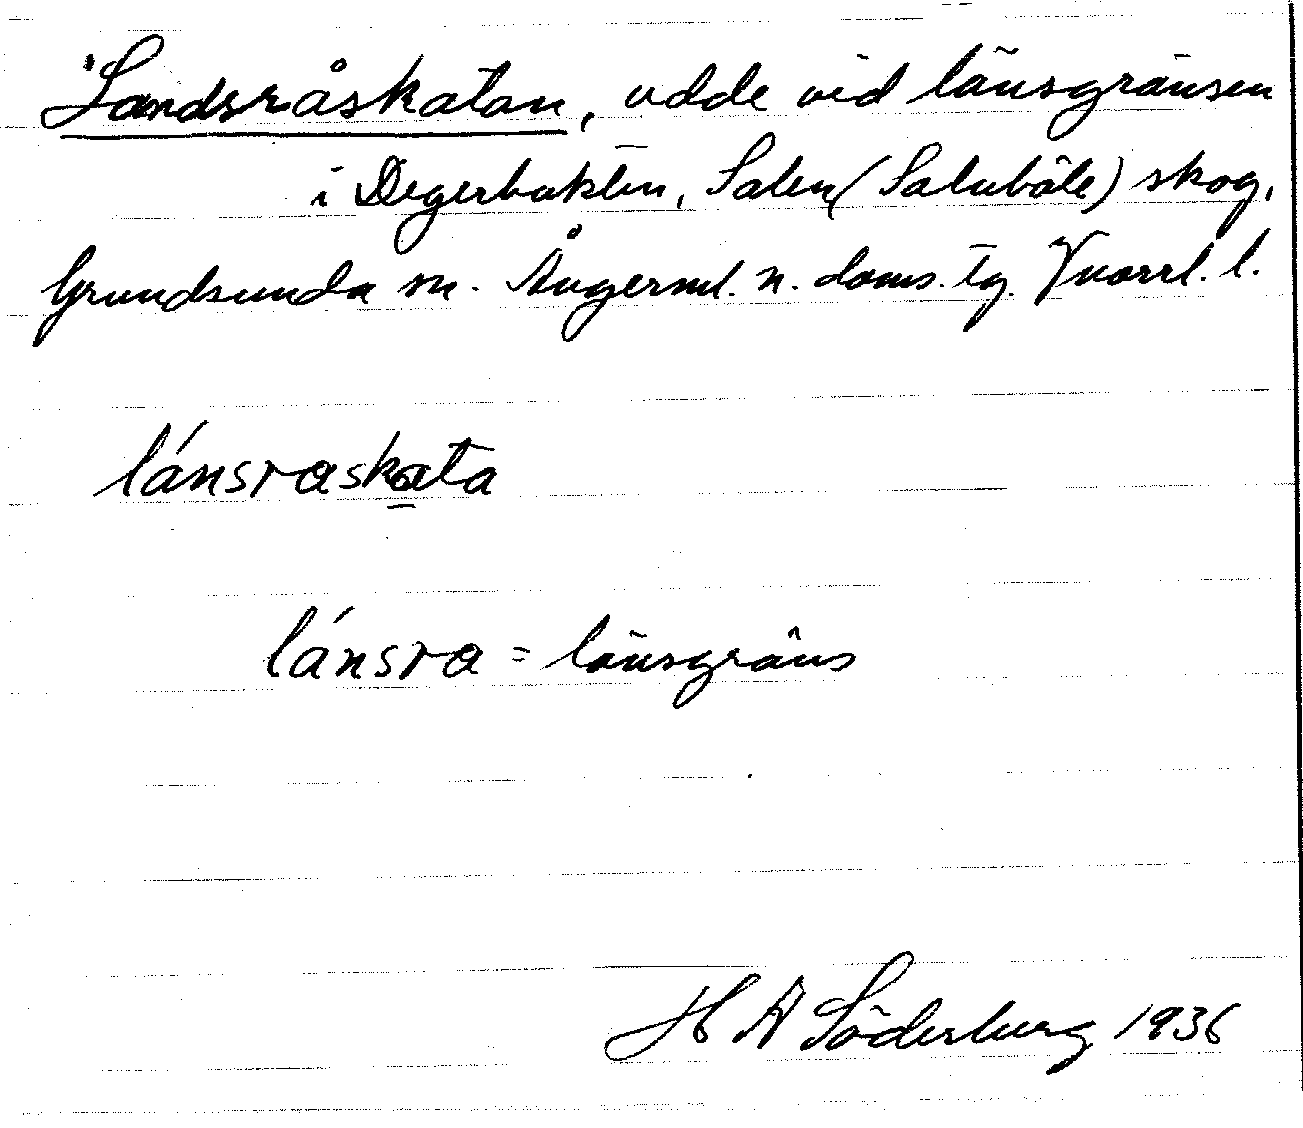 "Landsråskatan, udde vid länsgränsen
i Degerbukten, Salen (Saluböle) skog,
Grundsunda sn. Ångerml. n. doms. tg. Vnorrl. l.
lánsraskata
lánsra = länsgräns
H A Söderberg 1936